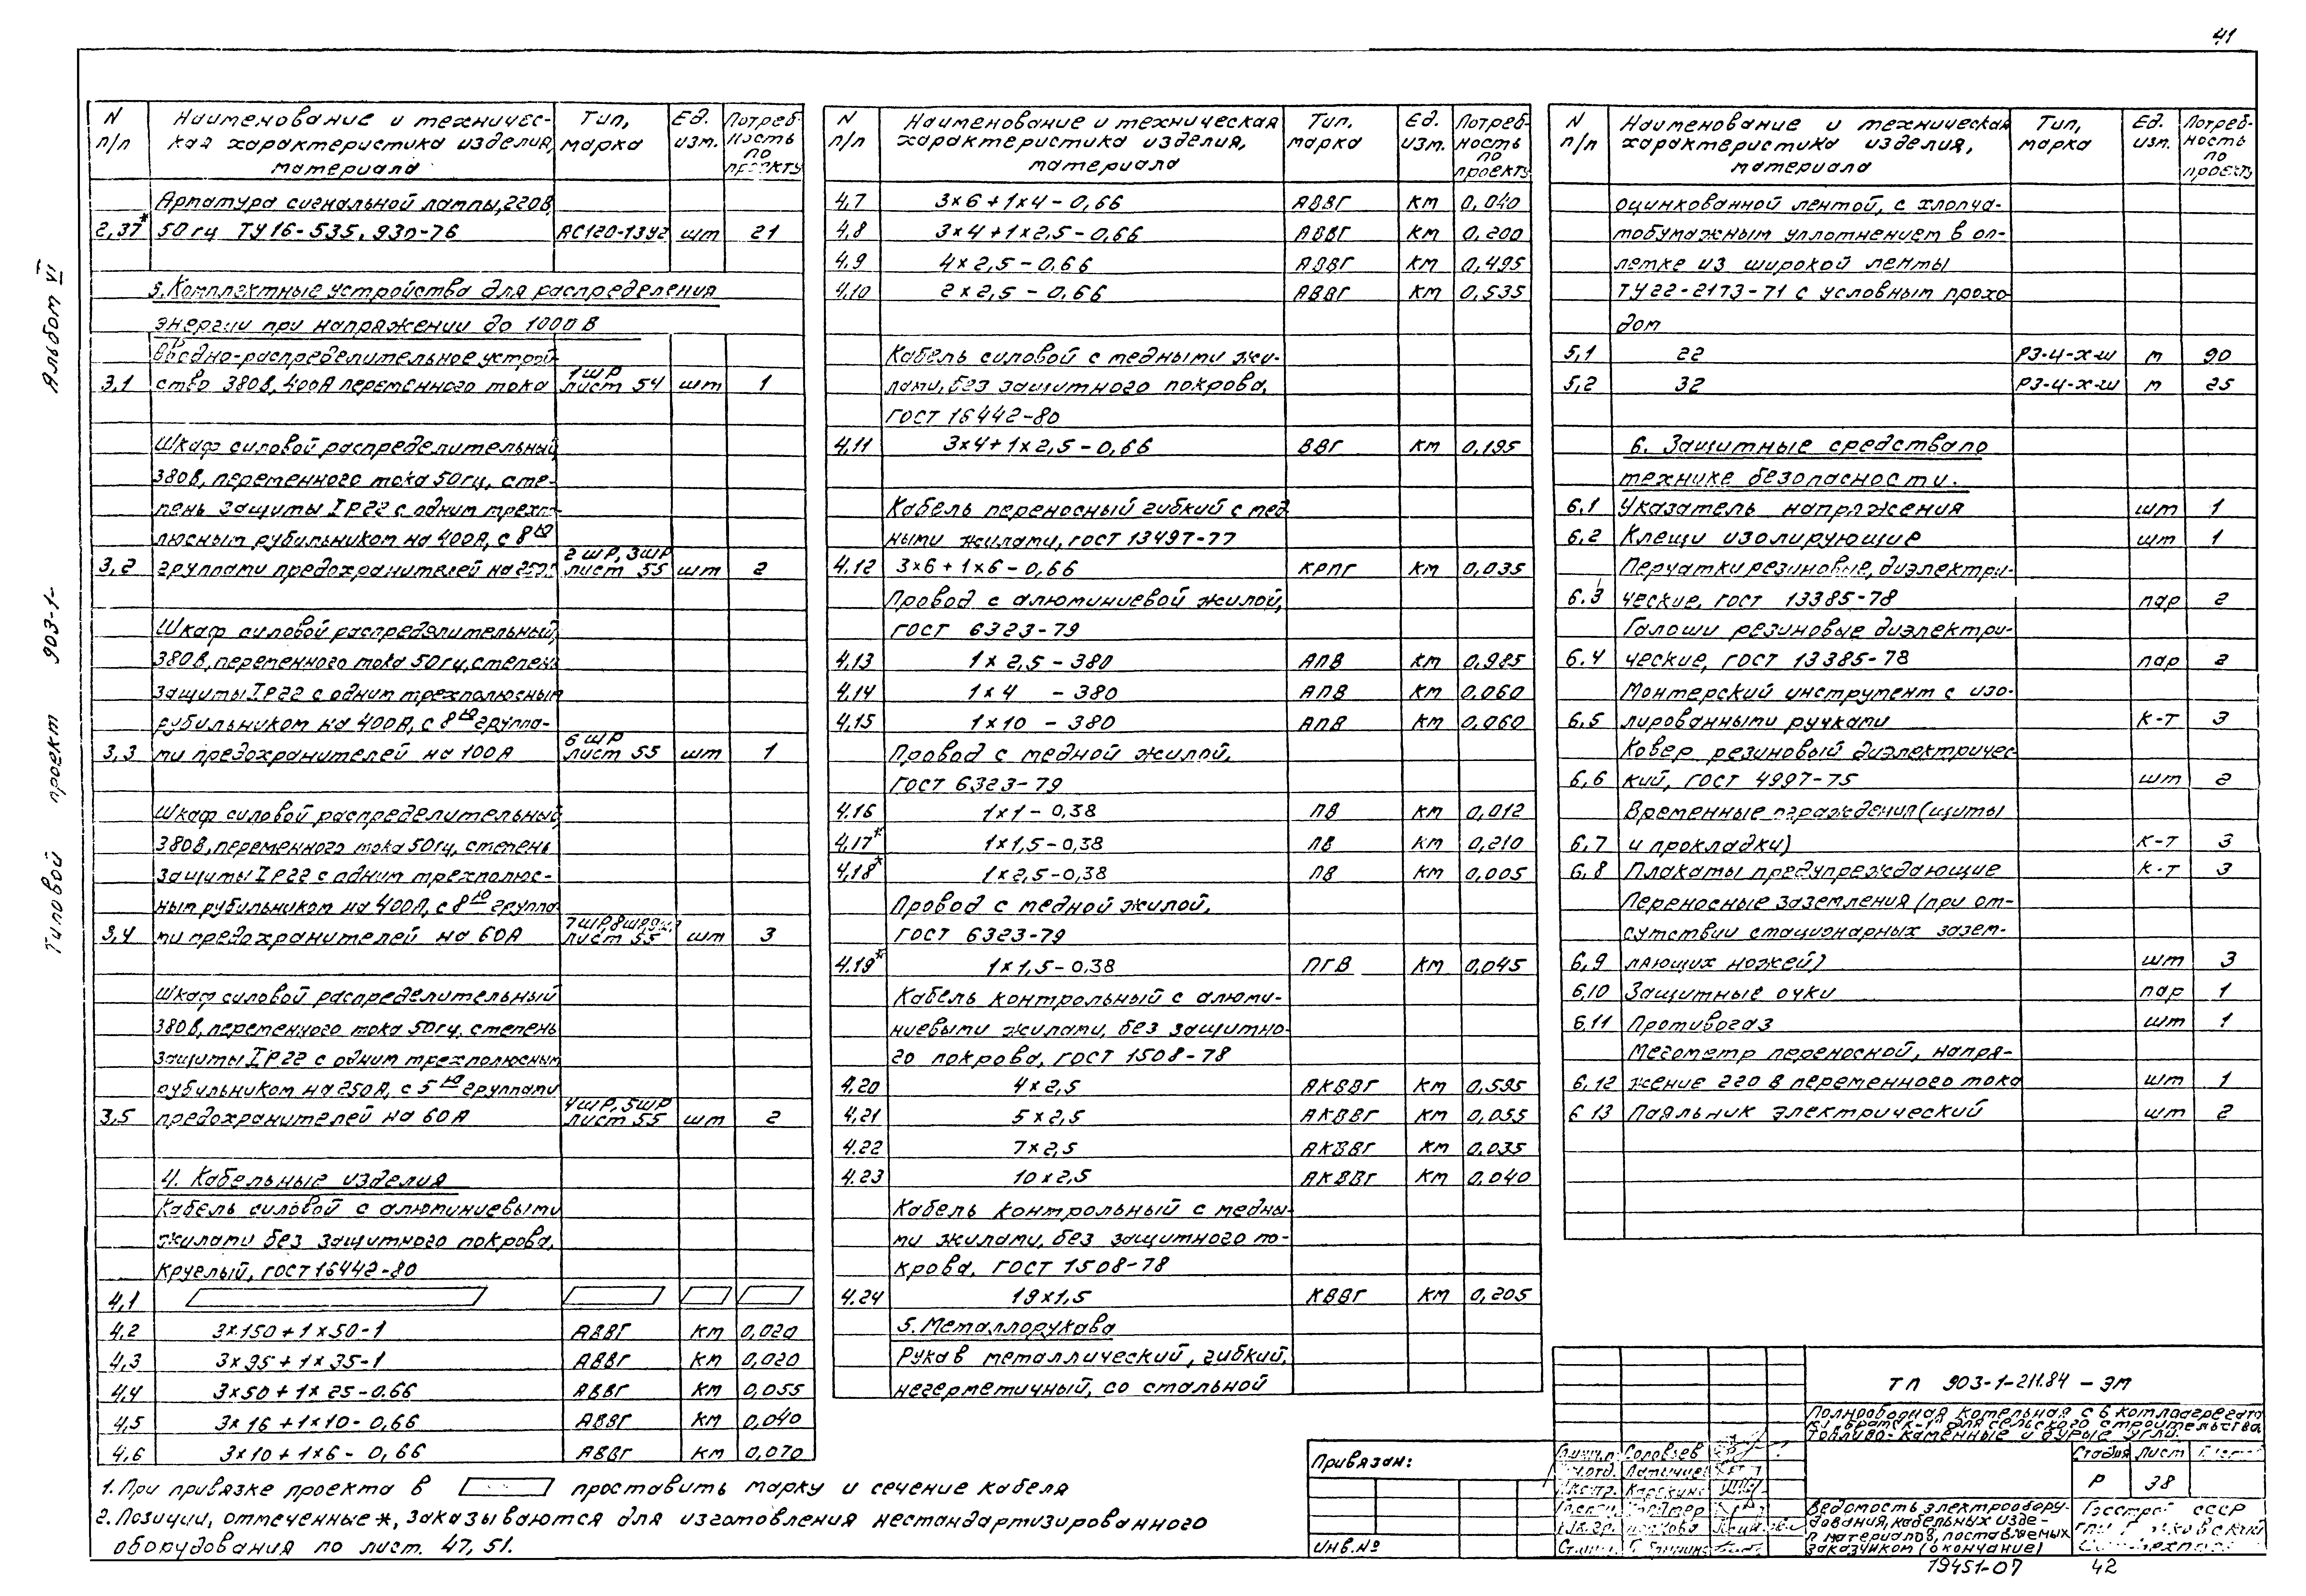 41
Альбом VI
Типовой проект 903-1-
N п/п Наименование и техническая характеристика изделия, материала Тип, марка Ед. изм. Потребность по проекту
Арматура сигнальной лампы, 220В,
2,37* 50гц ТУ16-535.930-76 АС120-13У2 шт 21
3. Комплектные устройства для распределения
энергии при напряжении до 1000 В
Вводно-распределительное устрой-
3,1 ство 380В, 400А переменного тока 1ШР лист 54 шт 1
Шкаф силовой распределительный
380В, переменного тока 50гц, сте-
пень защиты IP22 с одним трехпо-
люсным рубильником на 400А, с 8ю
3,2 группами предохранителей на 250А 2ШР, 3ШР лист 55 шт 2
Шкаф силовой распределительный,
380В, переменного тока 50гц, степень
защиты IP22 с одним трехполюсным
рубильником на 400А, с 8ю группа-
3,3 ми предохранителей на 100А 6ШР лист 55 шт 1
Шкаф силовой распределительный,
380В, переменного тока 50гц, степень
защиты IP22 с одним трехполюс-
ным рубильником на 400А, с 8ю группа-
3,4 ми предохранителей на 60А 7ШР, 8ШР, лист 55 шт 3
Шкаф силовой распределительный
380В, переменного тока 50гц, степень
защиты IP22 с одним трехполюсным
рубильником на 250А, с 5ю группами
3,5 предохранителей на 60А 4ШР, 5ШР лист 55 шт 2
4. Кабельные изделия
Кабель силовой с алюминиевыми
жилами без защитного покрова,
круглый, ГОСТ 16442-80
4,1
4,2 3×150+1×50-1 АВВГ км 0,020
4,3 3×95+1×35-1 АВВГ км 0,020
4,4 3×50+1×25-0.66 АВВГ км 0,055
4,5 3×16+1×10-0,66 АВВГ км 0,040
4,6 3×10+1×6-0,66 АВВГ км 0,070
1. При привязке проекта в проставить марку и сечение кабеля
2. Позиции, отмеченные *, заказываются для изготовления нестандартизированного
оборудования по лист. 47, 51.
N п/п Наименование и техническая характеристика изделия, материала Тип, марка Ед. изм. Потребность по проекту
4,7 3×6+1×4-0,66 АВВГ км 0,040
4,8 3×4+1×2,5-0,66 АВВГ км 0,200
4,9 4×2,5-0,66 АВВГ км 0,495
4,10 2×2,5-0,66 АВВГ км 0,535
Кабель силовой с медными жи-
лами, без защитного покрова,
ГОСТ 16442-80
4.11 3×4+1×2,5-0,66 ВВГ км 0,195
Кабель переносный гибкий с мед-
ными жилами, ГОСТ 13497-77
4.12 3×6+1×6-0,66 КРПГ км 0,035
Провод с алюминиевой жилой,
ГОСТ 6323-79
4,13 1×2,5-380 АПВ км 0,985
4,14 1×4 -380 АПВ км 0,060
4,15 1×10 -380 АПВ км 0,060
Провод с медной жилой,
ГОСТ 6323-79
4.16 1×1-0,38 ПВ км 0,012
4,17* 1×1,5-0,38 ПВ км 0,210
4,18* 1×2,5-0,38 ПВ км 0,005
Провод с медной жилой,
ГОСТ 6323-79
4.19* 1×1,5-0,38 ПГВ км 0,045
Кабель контрольный с алюми-
ниевыми жилами, без защитно-
го покрова, ГОСТ 1508-78
4.20 4×2,5 АКВВГ км 0,595
4,21 5×2,5 АКВВГ км 0,055
4.22 7×2,5 АКВВГ км 0,035
4.23 10×2,5 АКВВГ км 0,040
Кабель контрольный с медны-
ми жилами, без защитного по-
крова, ГОСТ 1508-78
4.24 19×1,5 КВВГ км 0,205
5. Металлорукава
Рукав металлический, гибкий,
негерметичный, со стальной
N п/п Наименование и техническая характеристика изделия, материала Тип, марка Ед. изм. Потребность по проекту
оцинкованной лентой, с хлопча-
тобумажным уплотнением в оп-
летке из широкой ленты
ТУ22-2173-71 с условным прохо-
дом
5,1 22 РЗ-Ц-Х-Ш м 90
5,2 32 РЗ-Ц-Х-Ш м 25
6. Защитные средства по
технике безопасности.
6,1 Указатель напряжения шт 1
6,2 Клещи изолирующие шт 1
Перчатки резиновые, диэлектри-
6.3 ческие, ГОСТ 13385-78 пар 2
Галоши резиновые диэлектри-
6.4 ческие, ГОСТ 13385-78 пар 2
Монтерский инструмент с изо-
6,5 лированными ручками к-т 3
Ковер резиновый диэлектричес-
6,6 кий, ГОСТ 4997-75 шт 2
Временные ограждения (щиты
6,7 и прокладки) к-т 3
6,8 Плакаты предупреждающие к-т 3
Переносные заземления (при от-
сутствии стационарных зазем-
6,9 ляющих ножей) шт 3
6,10 Защитные очки пар 1
6,11 Противогаз шт 1
Мегометр переносной, напря-
6,12 жение 220 В переменного тока шт 1
6 13 Паяльник электрический шт 2
Привязан:
Инв.№
ТП 903-1-211.84 - ЭМ
Соловьев
Стадия Лист
Р 38
Ведомость электрообору-
дования, кабельных изде-
и материалов, поставляемых
заказчиком (окончание)
Госстрой СССР
19451-07 42